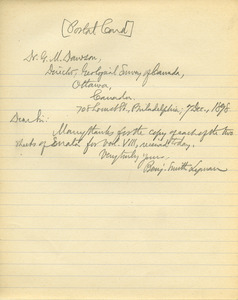 [Postal Card]
Dr. G. M. Dawson,
Director, Geological Survey of Canada,
Ottawa,
Canada.
708 Locust St., Philadelphia, 7 Dec., 1898.
Dear Sir:
Many thanks for the copy of each of the two
sheets of Errata for vol. VIII, received today.
Very truly yours,
Benj. Smith Lyman